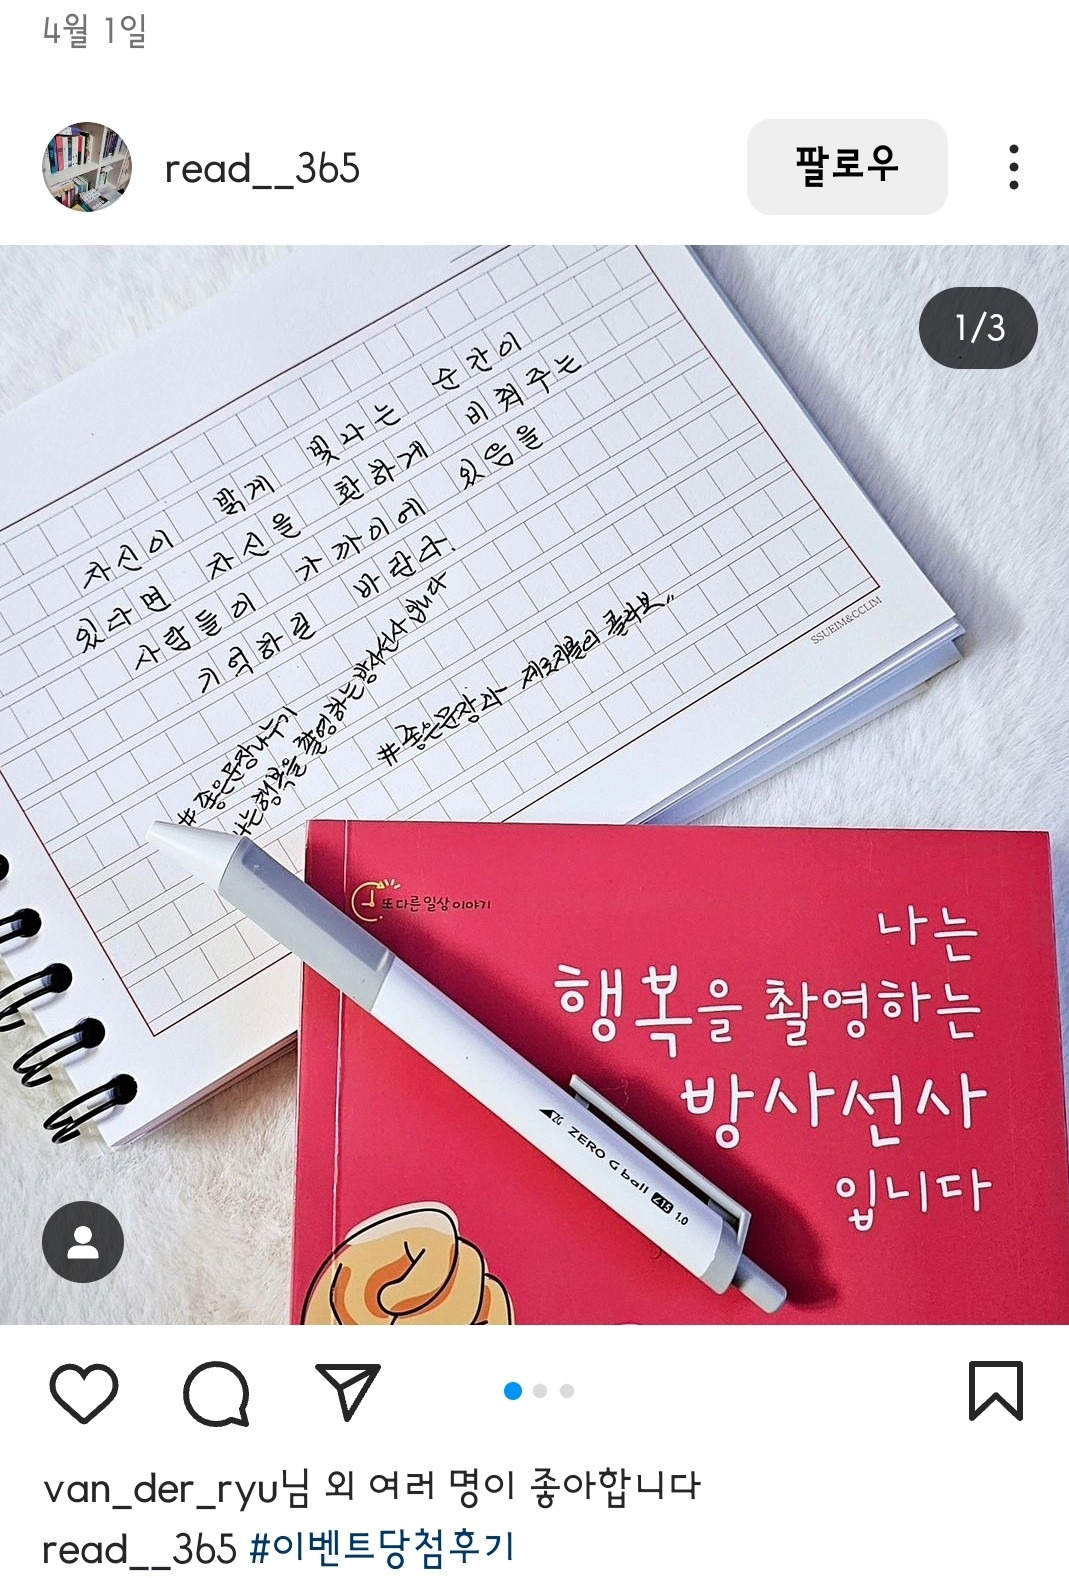 4월 1일
read__365
팔로우
1/3
자신이 밝게 빛나는 순간이
있다면 자신을 환하게 비춰주는
사람들이 가까이에 있음을
기억하길 바란다.
#좋은문장나누기
나는행복을 촬영하는방사선사입니다
#좋은문장과 제로지볼의 콜라보"
SSUEIM&CCLIM
또 다른 일상 이야기
나는
행복을 촬영하는
방사선사
입니다
ZG ZERO G ball Z15 1.0
van_der_ryu님 외 여러 명이 좋아합니다
read__365 #이벤트당첨후기